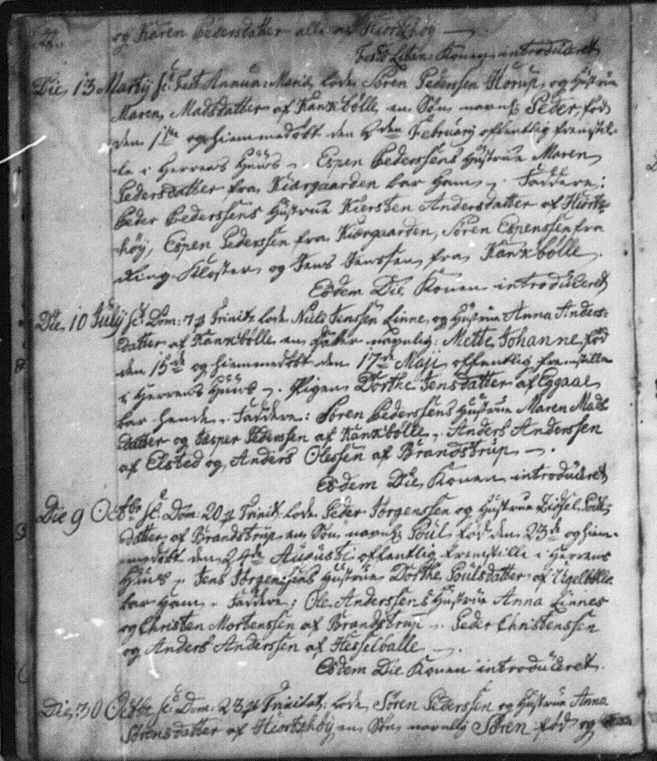 og Karen Pedersdatter alle af Hiortshøy
Konen introduceret
Die 13 Martij sc: Fest: Annun: Mariæ lode Sören Pedersen Hörup og Hustrue
Maren Madsdatter af Kankbölle en Sön navnl: Peder, föd
den 1ste og hiemmedöbt den den Februarij offentlig fremstil-
le i Herrens Huus. Espen Pederssens Hustrue Maren
Pedersdatter fra Kiærgaarden bar Ham. Faddere:
Peder Pederssens Hustrue Kiersten Andersdatter af Hiorts-
höy, Espen Pederssen fra Kiærgaarden, Sören Espenssen fra
Ring Kloster og Jens Jenssen fra Kankbölle.
Eodem Die Konen introduceret
Die 10 Julij sc: Dom: 7 p Trinit: lode Niels Jenssen Linne og Hustrue Anna Anders-
datter af Kankbölle en Datter navnlig: Mette Johanne, föd
den 15de og hiemmedöbt den 17de Maji offentlig fremstille
i Herrens Huus. Pigen Dorthe Jensdatter af Eggaae
bar hende. Faddere: Sören Pederssens Hustrue Maren Mads-
datter og Jesper Pederssen af Kankbölle. Anders Anderssen
af Elsted og Anders Olessen af Brandstrup.
Eodem Die Konen introduceret
Die 9 Octbr sc: Dom: 20 p Trinit: lode Peder Jörgenssen og Hustrue Sidsel Poüls-
datter af Brandstrup en Sön navnl: Poul föd den 23de og hiem-
medöbt den 24de Augusti offentlig fremstille i Herrens
Huus. Jens Jörgensens Hustrue Dorthe Poulsdatter af Ugelbölle
bar Ham. Faddere: Ole Anderssens Hustrue Anna Linnes
og Christen Mortenssen af Brandstrup. Peder Christenssen
og Anders Anderssen af Hesselballe.
Eodem Die Konen introduceret.
Die 30 Octbr sc: Dom: 23 p Trinitat: lode Sören Pederssen og Hustrue Anna
Sörensdatter af Hiortshöy en Sön navnlig Sören föd og